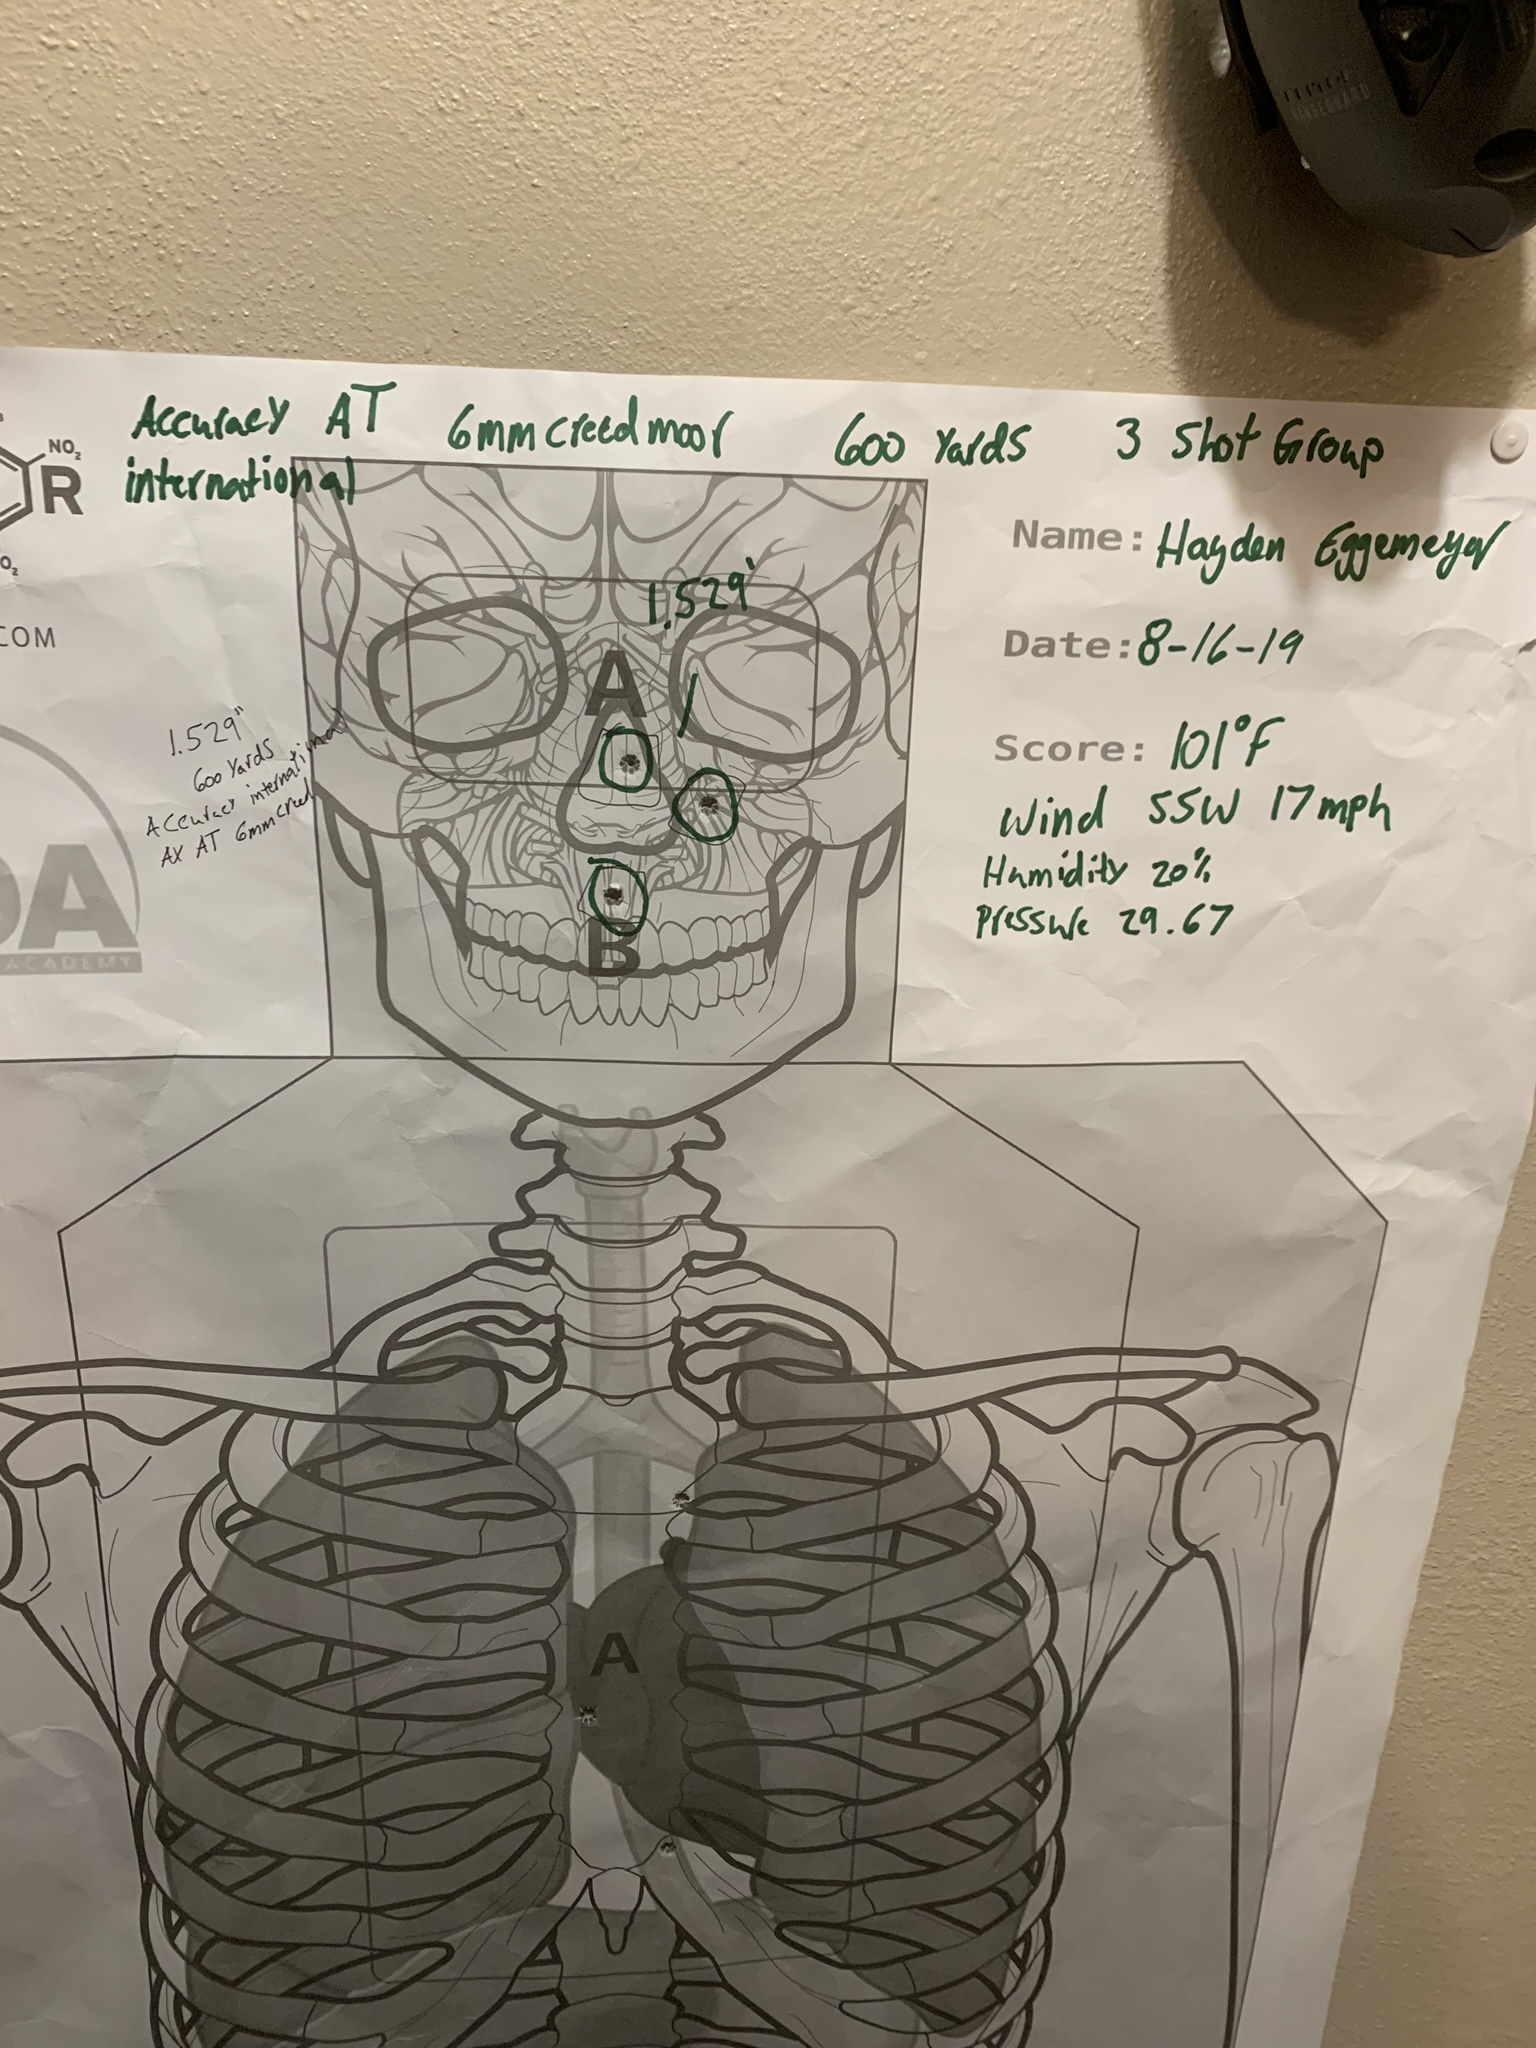 Accuracy AT 6mm creedmoor 600 Yards 3 Shot Group
international
NO2
R
Name: Hayden Eggemeyer
1.529"
.COM
Date: 8-16-19
A
1.529"
600 Yards
Accuracy international
AX AT 6mm creed
Score: 101°F
Wind SSW 17mph
Humidity 20%
Pressure 29.67
OA
ACADEMY
B
A